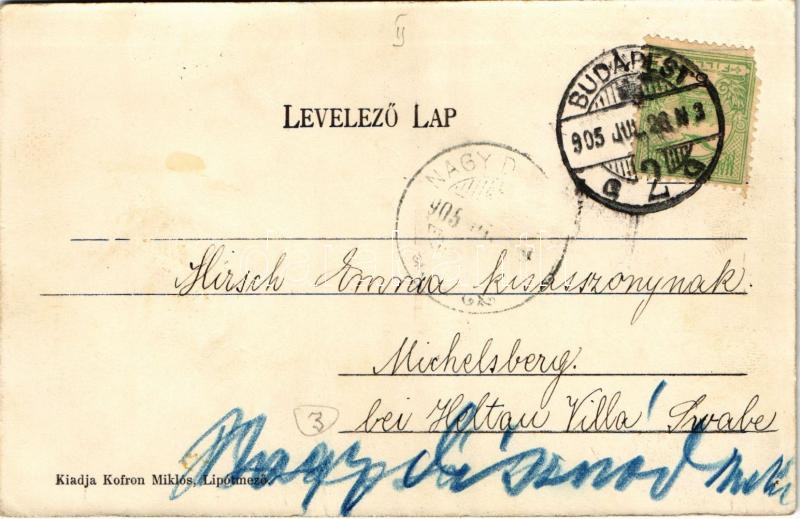 LEVELEZŐ LAP
BUDAPEST
905 JUL. 28 N 3
NAGY D
905
Hirsch Emma kisasszonynak.
Michelsberg.
bei Heltau Villa Swabe
3
Nagydisznod
Kiadja Kofron Miklós, Lipótmező.